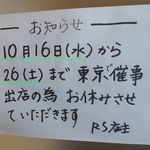 お知らせ
10月16日(水)から
26(土)まで東京で催事
出店の為お休みさせ
ていただきます
店主